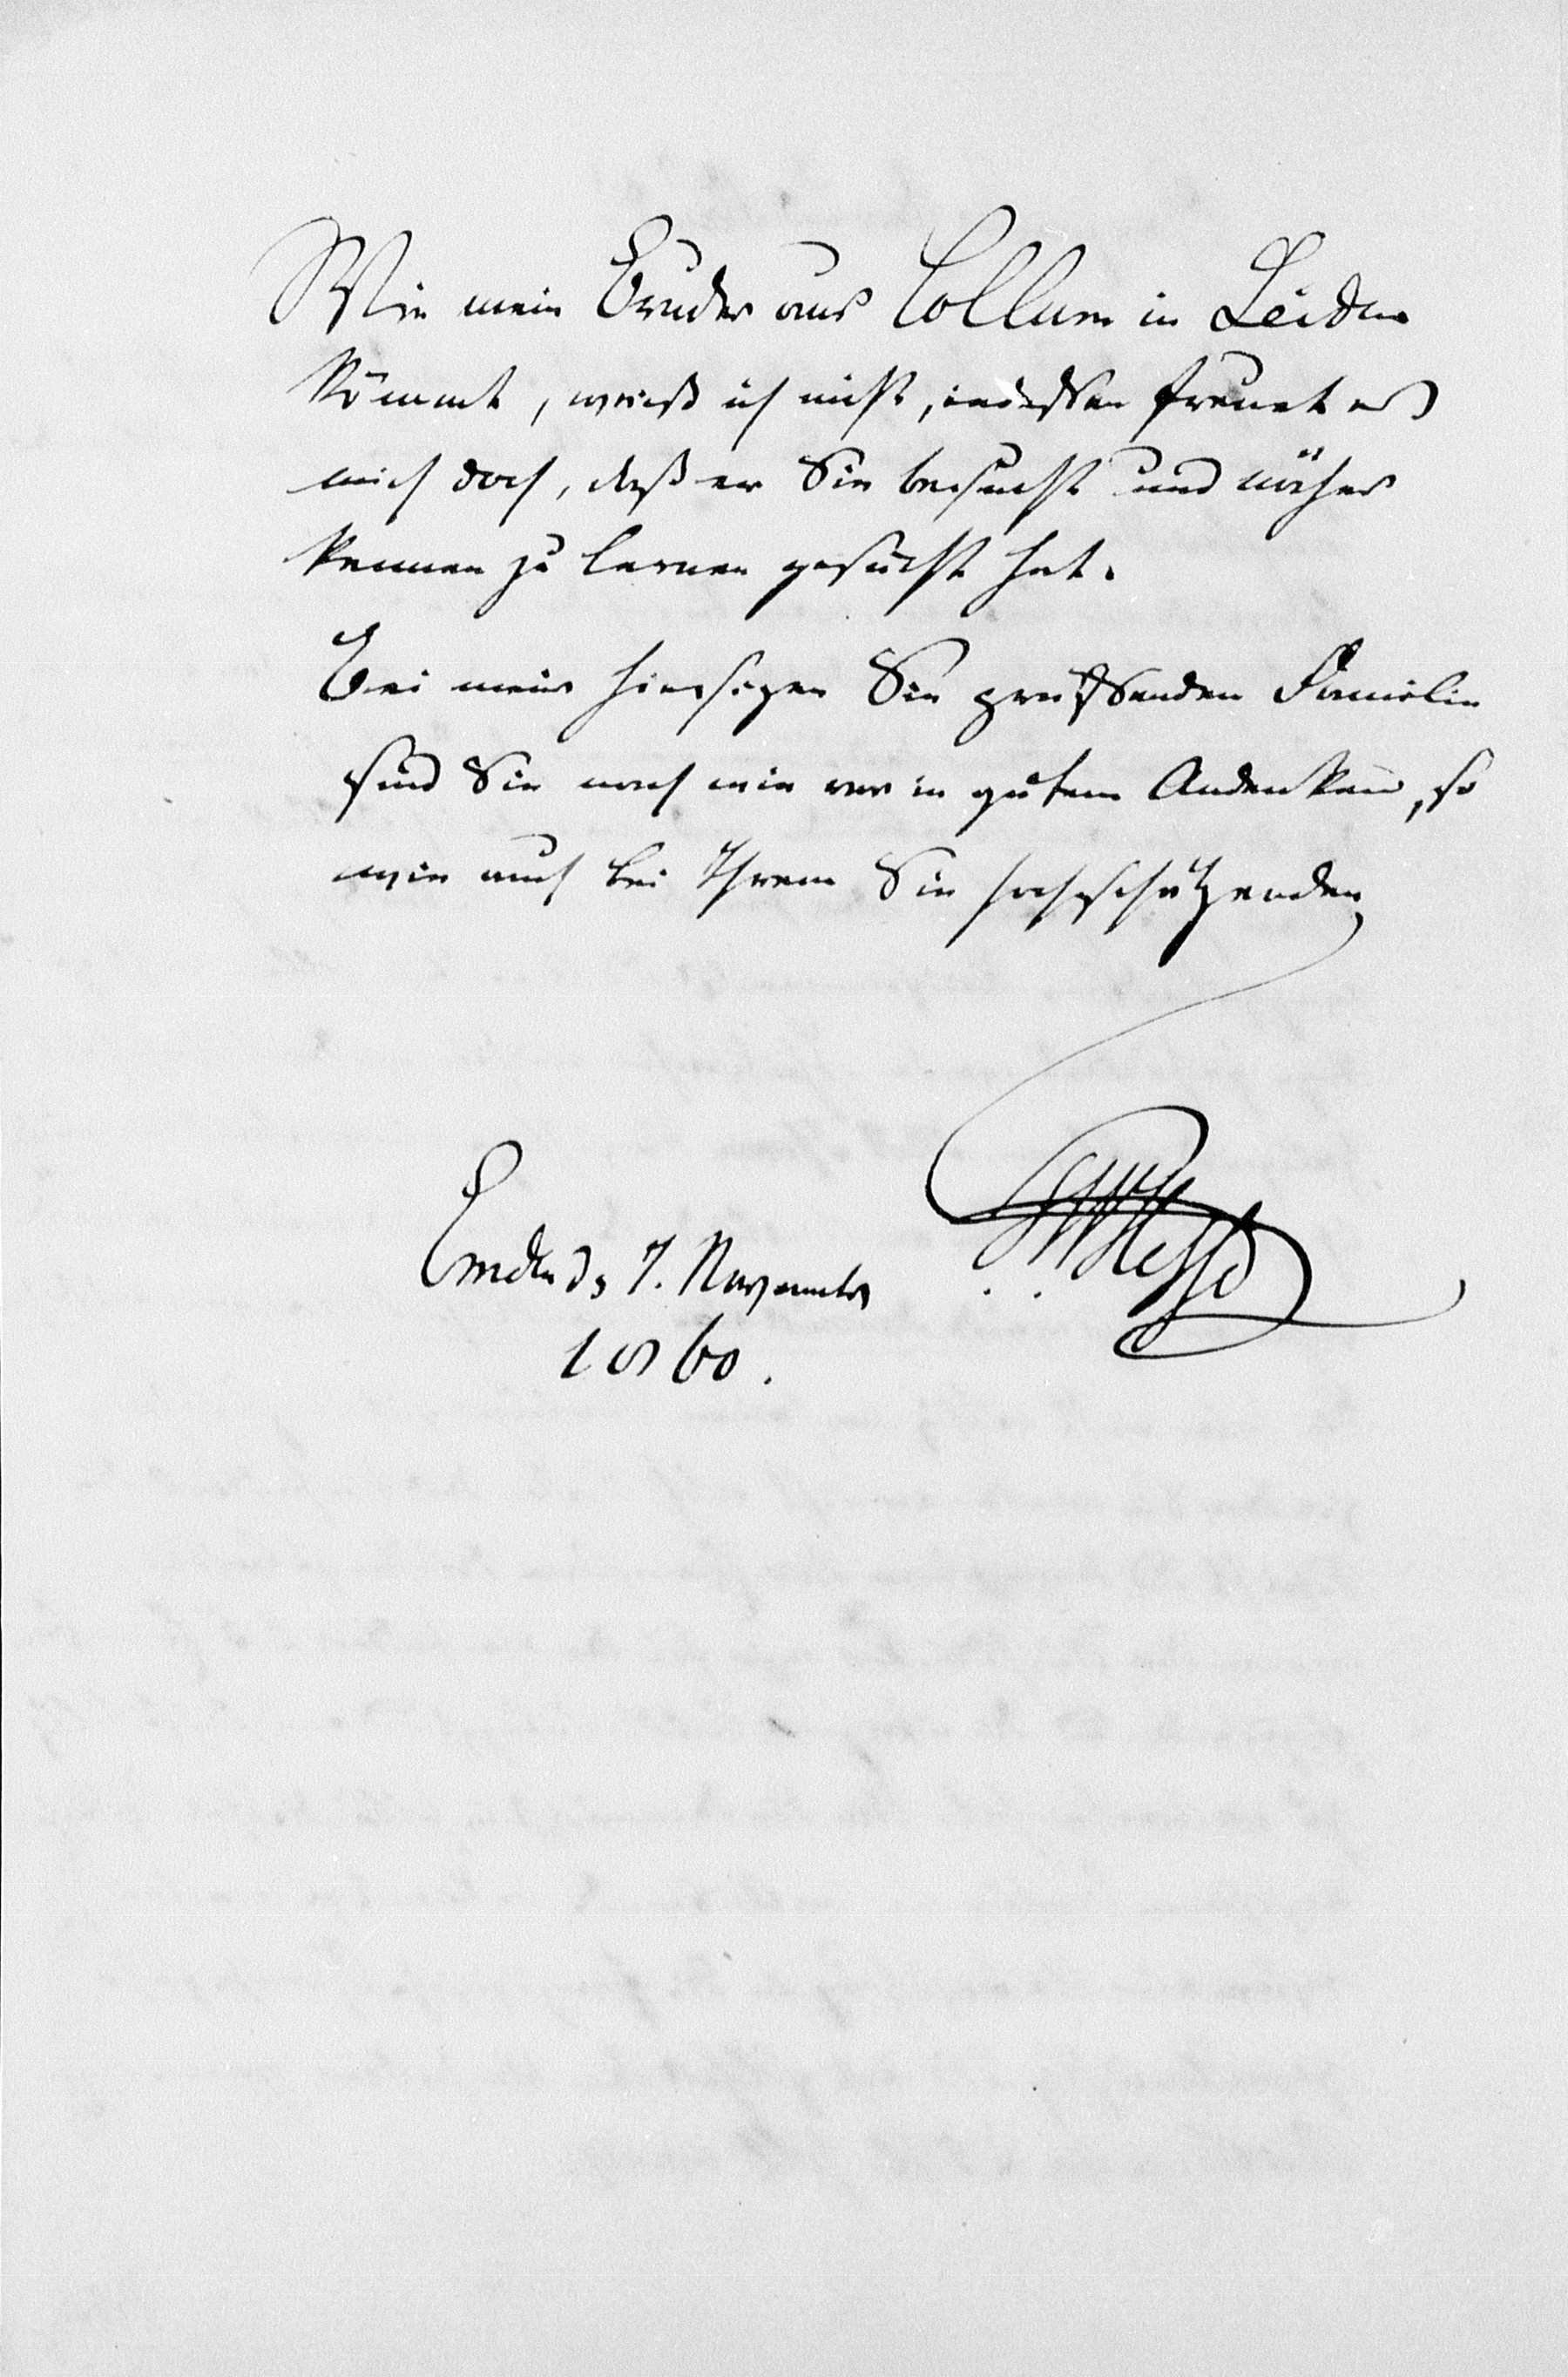 Wie mein Bruder aus Collum in Leiden
kömmt, weiß ich nicht, indessen freuet es
mich doch, daß er Sie besucht und näher
kennen zu lernen gesucht hat.
Bei meiner hiesigen Sie grüßenden Familie
sind Sie noch wie vor in gutem Andenken, so
wie auch bei Ihrem Sie hochschätzenden
Emden d. 7. November
1860.